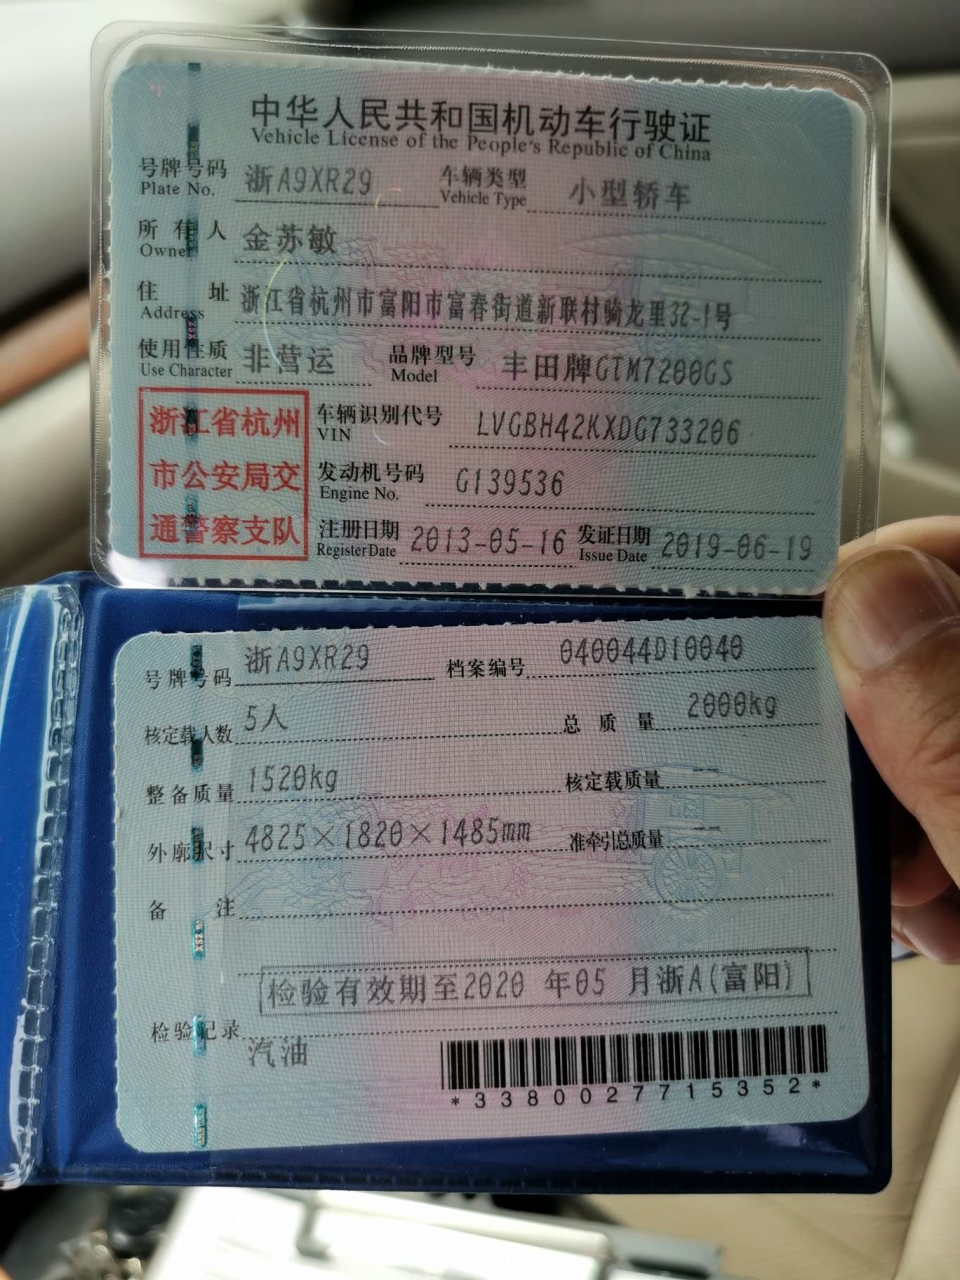 中华人民共和国机动车行驶证
Vehicle License of the People's Republic of China
号牌号码 浙A9XR29 车辆类型 小型轿车
Plate No. Vehicle Type
所有人 金苏敏
Owner
住址 浙江省杭州市富阳市富春街道新联村骑龙里32-1号
Address
使用性质 非营运 品牌型号 丰田牌GTM7200GS
Use Character Model
浙江省杭州
市公安局交
通警察支队
车辆识别代号 LVGBH42KXDG733206
VIN
发动机号码 G139536
Engine No.
注册日期 2013-05-16 发证日期 2019-06-19
Register Date Issue Date
号牌号码 浙A9XR29 档案编号 040044D10040
核定载人数 5人 总质量 2000kg
整备质量 1520kg 核定载质量 --
外廓尺寸 4825×1820×1485mm 准牵引总质量 --
备注
检验有效期至2020年05月浙A(富阳)
检验记录
汽油
*3380027715352*